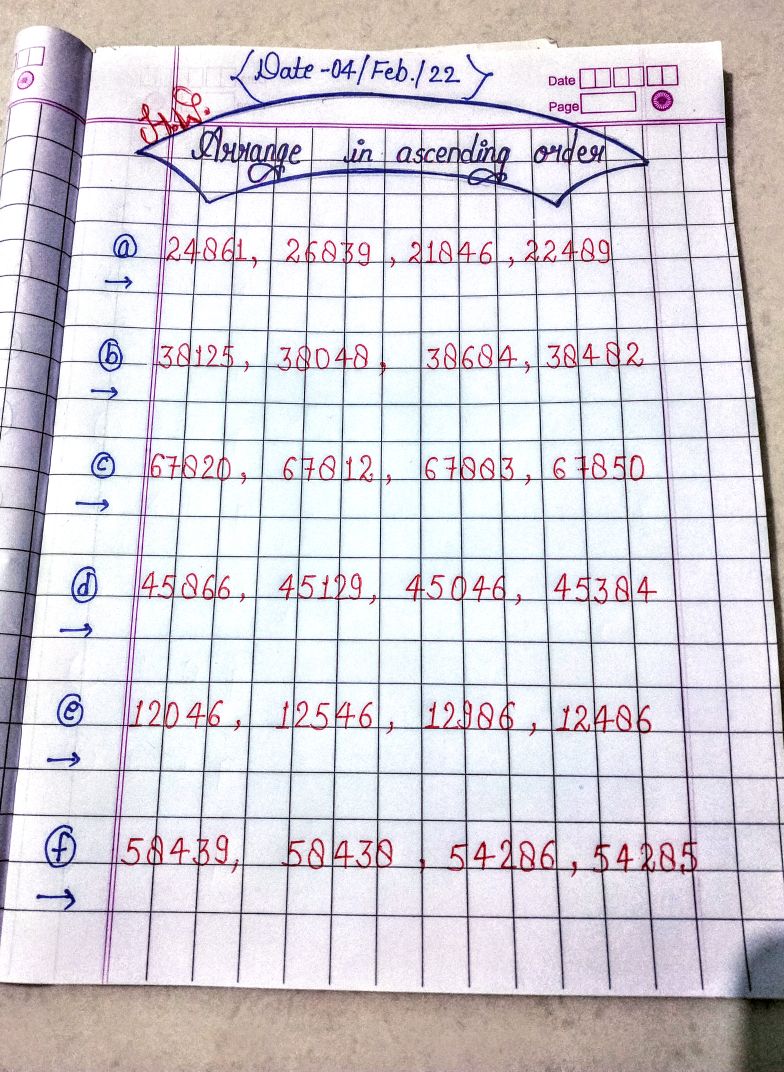 Date -04/Feb./22
Date
Page
H.W.
Arrange in ascending order
a 24861, 26839, 21846, 22489
→
b 38125, 38048, 38684, 38482
→
c 67820, 67812, 67883, 67850
→
d 45866, 45129, 45046, 45384
→
e 12046, 12546, 12986, 12486
→
f 58439, 58438, 54286, 54285
→